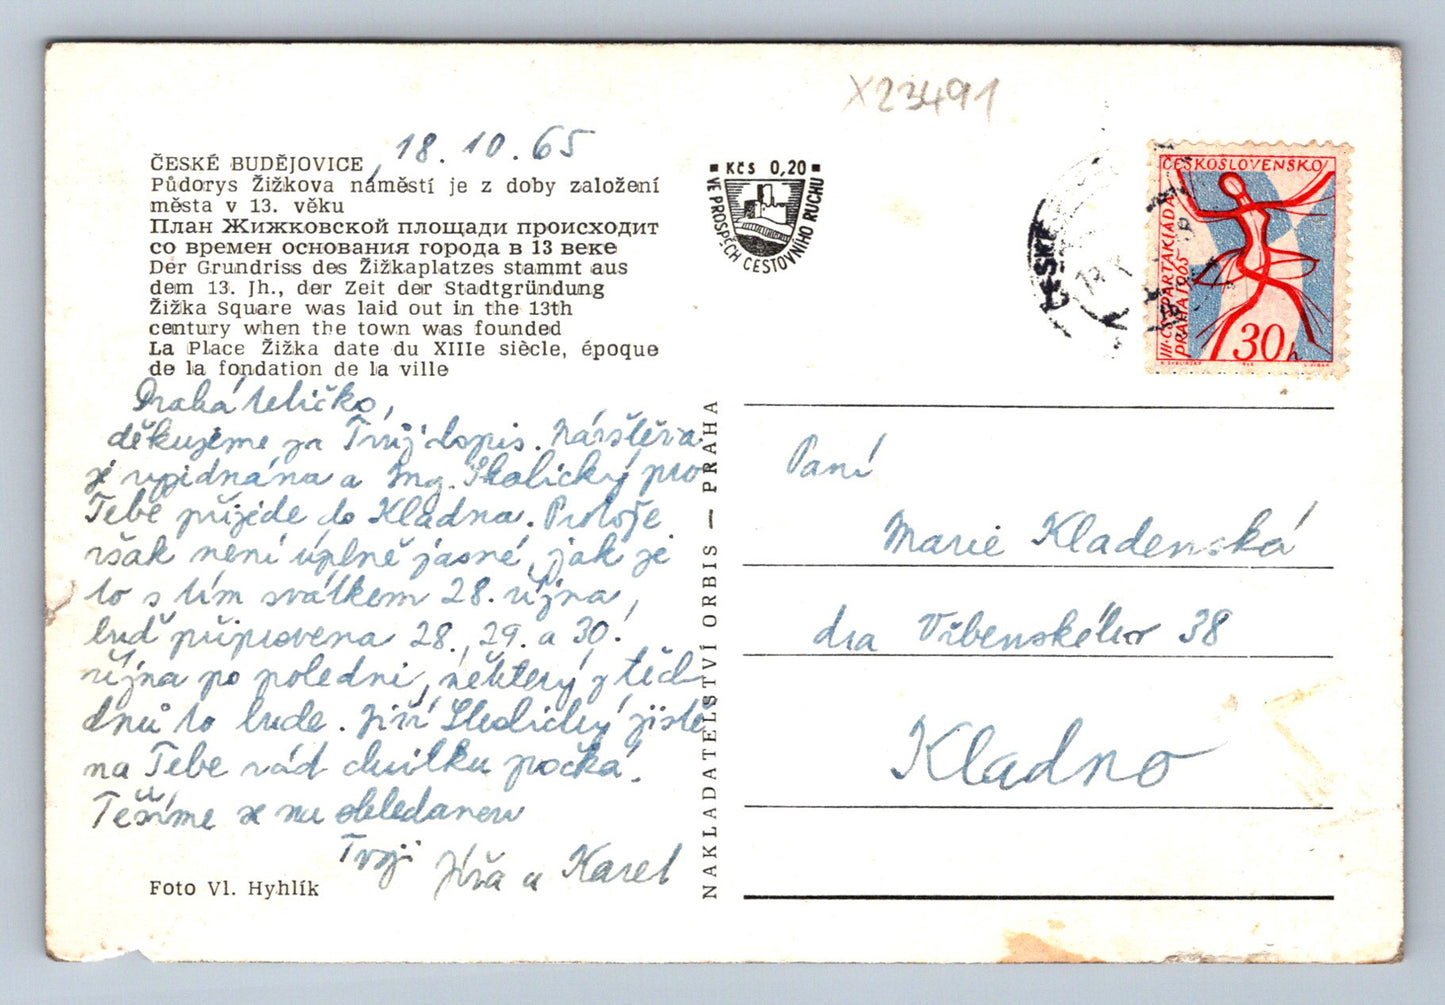 X23491
18.10.65
ČESKÉ BUDĚJOVICE
Půdorys Žižkova náměstí je z doby založení
města v 13. věku
План Жижковской площади происходит
со времен основания города в 13 веке
Der Grundriss des Žižkaplatzes stammt aus
dem 13. Jh., der Zeit der Stadtgründung
Žižka Square was laid out in the 13th
century when the town was founded
La Place Žižka date du XIIIe siècle, époque
de la fondation de la ville
Drahá tetičko,
děkujeme za Tvůj dopis. Návštěva
je vyjednána a Ing. Skalický pro
Tebe přijede do Kladna. Protože
však není úplně jasné, jak je
to s tím svátkem 28. října,
buď připravena 28., 29. a 30.
října po poledni, některý z těch
dnů to bude. Jiří Skalický jistě
na Tebe rád chvilku počká.
Těšíme se na shledanou
Tvoji Jířa a Karel
Foto Vl. Hyhlík
NAKLADATELSTVÍ ORBIS — PRAHA
Kčs 0,20
VE PROSPĚCH CESTOVNÍHO RUCHU
ČESKÉ
ČESKOSLOVENSKO
III. CS. SPARTAKIÁDA
PRAHA 1965
30h
Paní
Marie Kladenská
dra Vrbenského 38
Kladno